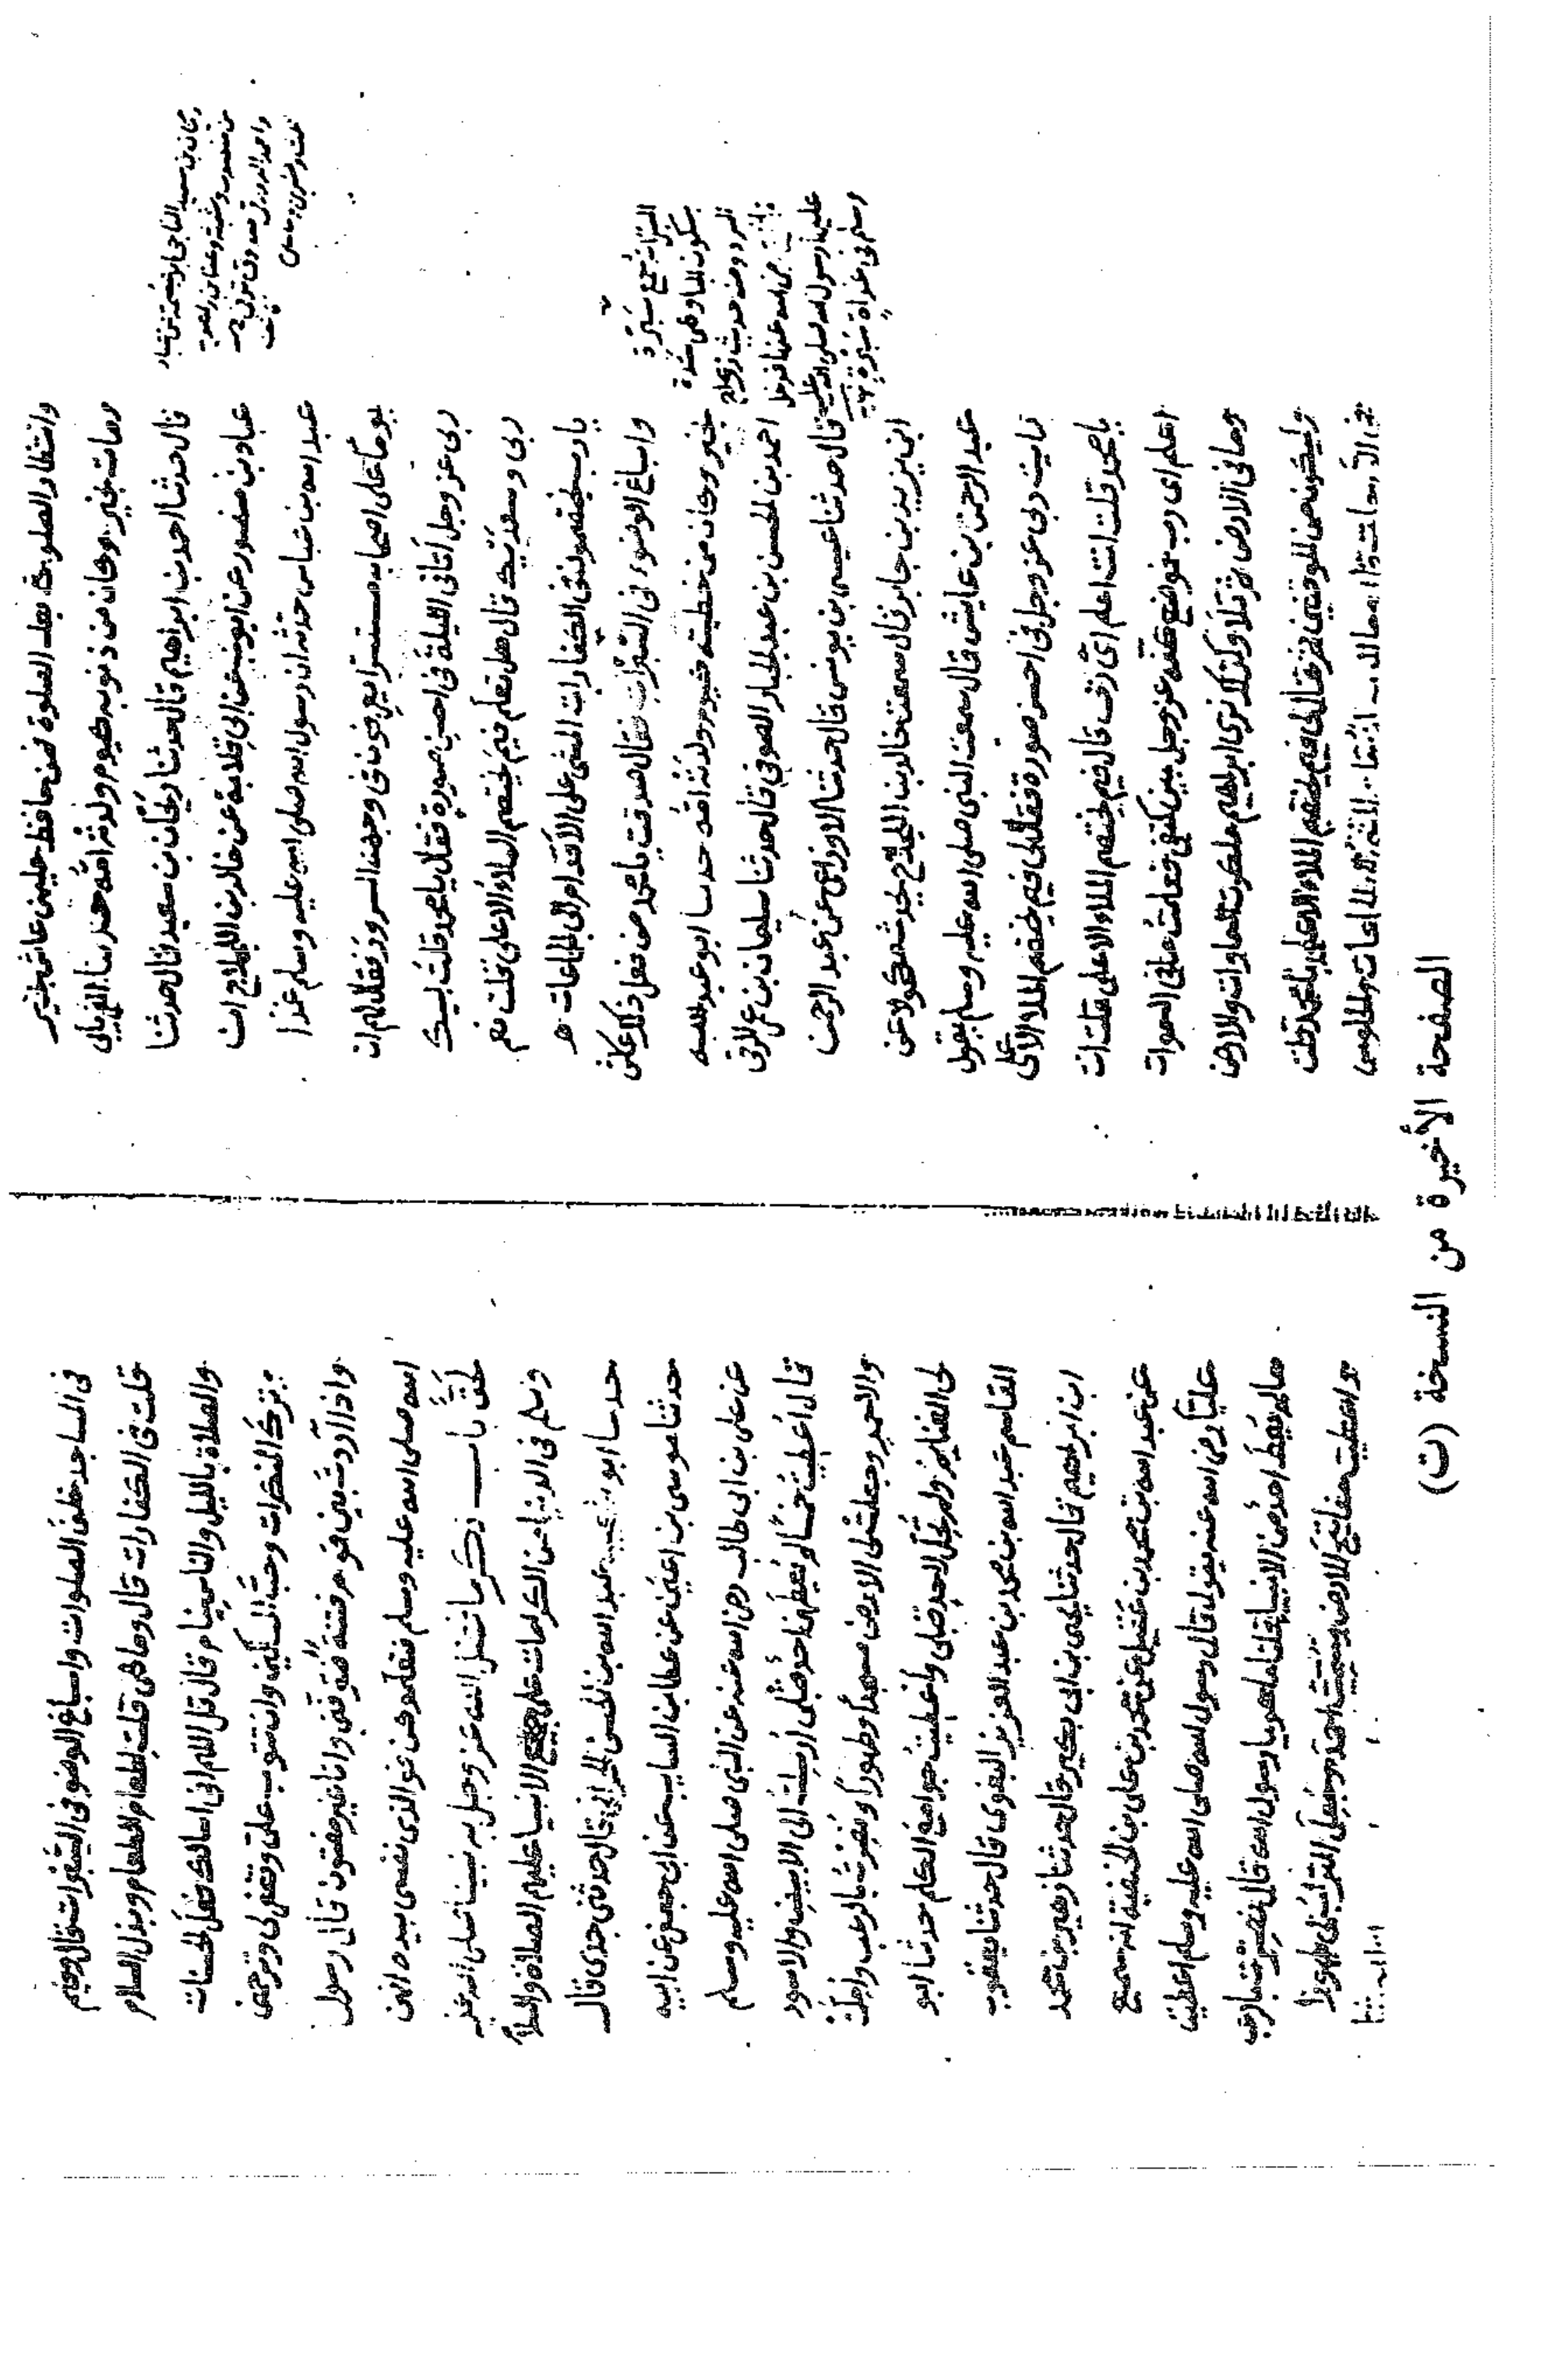 وانتظار الصلوة بعد الصلوة فمن حافظ عليهن عاش بخير
ومات بخير وكان من ذنوبه كيوم ولدته امه حدثنا الفريابي
قال حدثنا احمد بن ابراهيم قال حدثنا ريحان بن سعيد قال حدثنا
عباد بن منصور عن ايوب عن ابي قلابة عن خالد بن اللجلاج ان
عبد الله بن عباس حدثه ان رسول الله صلى الله عليه وسلم غدا
يوما على اصحابه مستبشرا يعرفون في وجهه السرور فقال لهم ان
ربي عز وجل أتاني الليلة في احسن صورة فقال يا محمد قلت لبيك
ربي وسعديك قال هل تعلم فيم يختصم الملاء الاعلى قلت نعم
يا رب يختصمون في الكفارات المشي على الاقدام الى الجماعات
واسباغ الوضوء في السبرات فقال صدقت يا محمد من فعل ذلك عاش
بخير وكان من خطيئته كيوم ولدته امه حدثنا ابو عبد الله
احمد بن الحسن بن عبد الجبار الصوفي قال حدثنا سليمان بن عمر الرقي
قال حدثنا عيسى بن يونس قال حدثنا الاوزاعي عن عبد الرحمن
ابن يزيد بن جابر قال سمعت خالد بن اللجلاج يحدث مكحولا عن
عبد الرحمن بن عايش قال سمعت النبي صلى الله عليه وسلم يقول
رايت ربي عز وجل في احسن صورة فقال لي فيم يختصم الملا الاعلى
يا محمد قلت انت اعلم اي رب قال فيم يختصم الملاء الاعلى قلت انت
اعلم اي رب فوضع كفه عز وجل بين كتفي فعلمت ما في السموات
وما في الارض ثم تلا وكذلك نري ابراهيم ملكوت السماوات والارض
وليكون من الموقنين ثم قال لي فيم يختصم الملاء الاعلى يا محمد قلت
ريحان بن سعيد الناجي ابو عصمة
عن عباد بن منصور وشعبة وعنه
واحمد الدورقي صدوق توفي سنة
السبرات جمع سبرة
بسكون البا وهي شدة
البرد ومنه حديث زواج
رضي الله عنها فدخل
عليها رسول الله صلى الله عليه
وسلم في غداة سبرة
في المساجد خلف الصلوات واسباغ الوضو في السبرات قال وفيم
قلت في الكفارات قال وما هي قلت اطعام الطعام وبذل السلام
والصلاة بالليل والناس نيام قال قل اللهم اني اسالك فعل الحسنات
وترك المنكرات وحب المساكين وان تتوب علي وتغفر لي وترحمني
واذا اردت بين قوم فتنة فتوفني وانا غير مفتون قال رسول
الله صلى الله عليه وسلم فتعلموهن فو الذي نفسي بيده انهن
لحق باب ذكر ما فضل الله عز وجل به نبينا صلى الله عليه
وسلم في الدنيا من الكرامات على جميع الانبيا عليهم الصلاة والسلام
حدثنا ابو شعيب عبد الله بن الحسن الحراني قال حدثني جدي قال
حدثنا موسى بن اعين عن عطا بن السايب عن ابي جعفر عن ابيه
عن علي بن ابي طالب رضي الله عنه عن النبي صلى الله عليه وسلم
قال أعطيت خمسا لم يعطهن احد قبلي أرسلت الى الابيض والاسود
والاحمر وجعلت لي الارض مسجدا وطهورا ونصرت بالرعب واحلت
لي الغنايم ولم تحل لاحد قبلي وأعطيت جوامع الكلم حدثنا ابو
القاسم عبد الله بن محمد بن عبد العزيز البغوي قال حدثنا يعقوب
ابن ابراهيم قال حدثنا يحيى بن ابي بكير قال حدثنا زهير بن محمد
عن عبد الله بن محمد بن عقيل عن محمد بن علي بن الحنفية انه سمع
عليا رضي الله عنه يقول قال رسول الله صلى الله عليه وسلم اعطيت
ما لم يعط احد من الانبيا قلنا ما هو يا رسول الله قال نصرت بالرعب
واعطيت مفاتيح الارض وسميت احمد وجعل لي التراب لي طهورا
الصفحة الأخيرة من النسخة (ت)